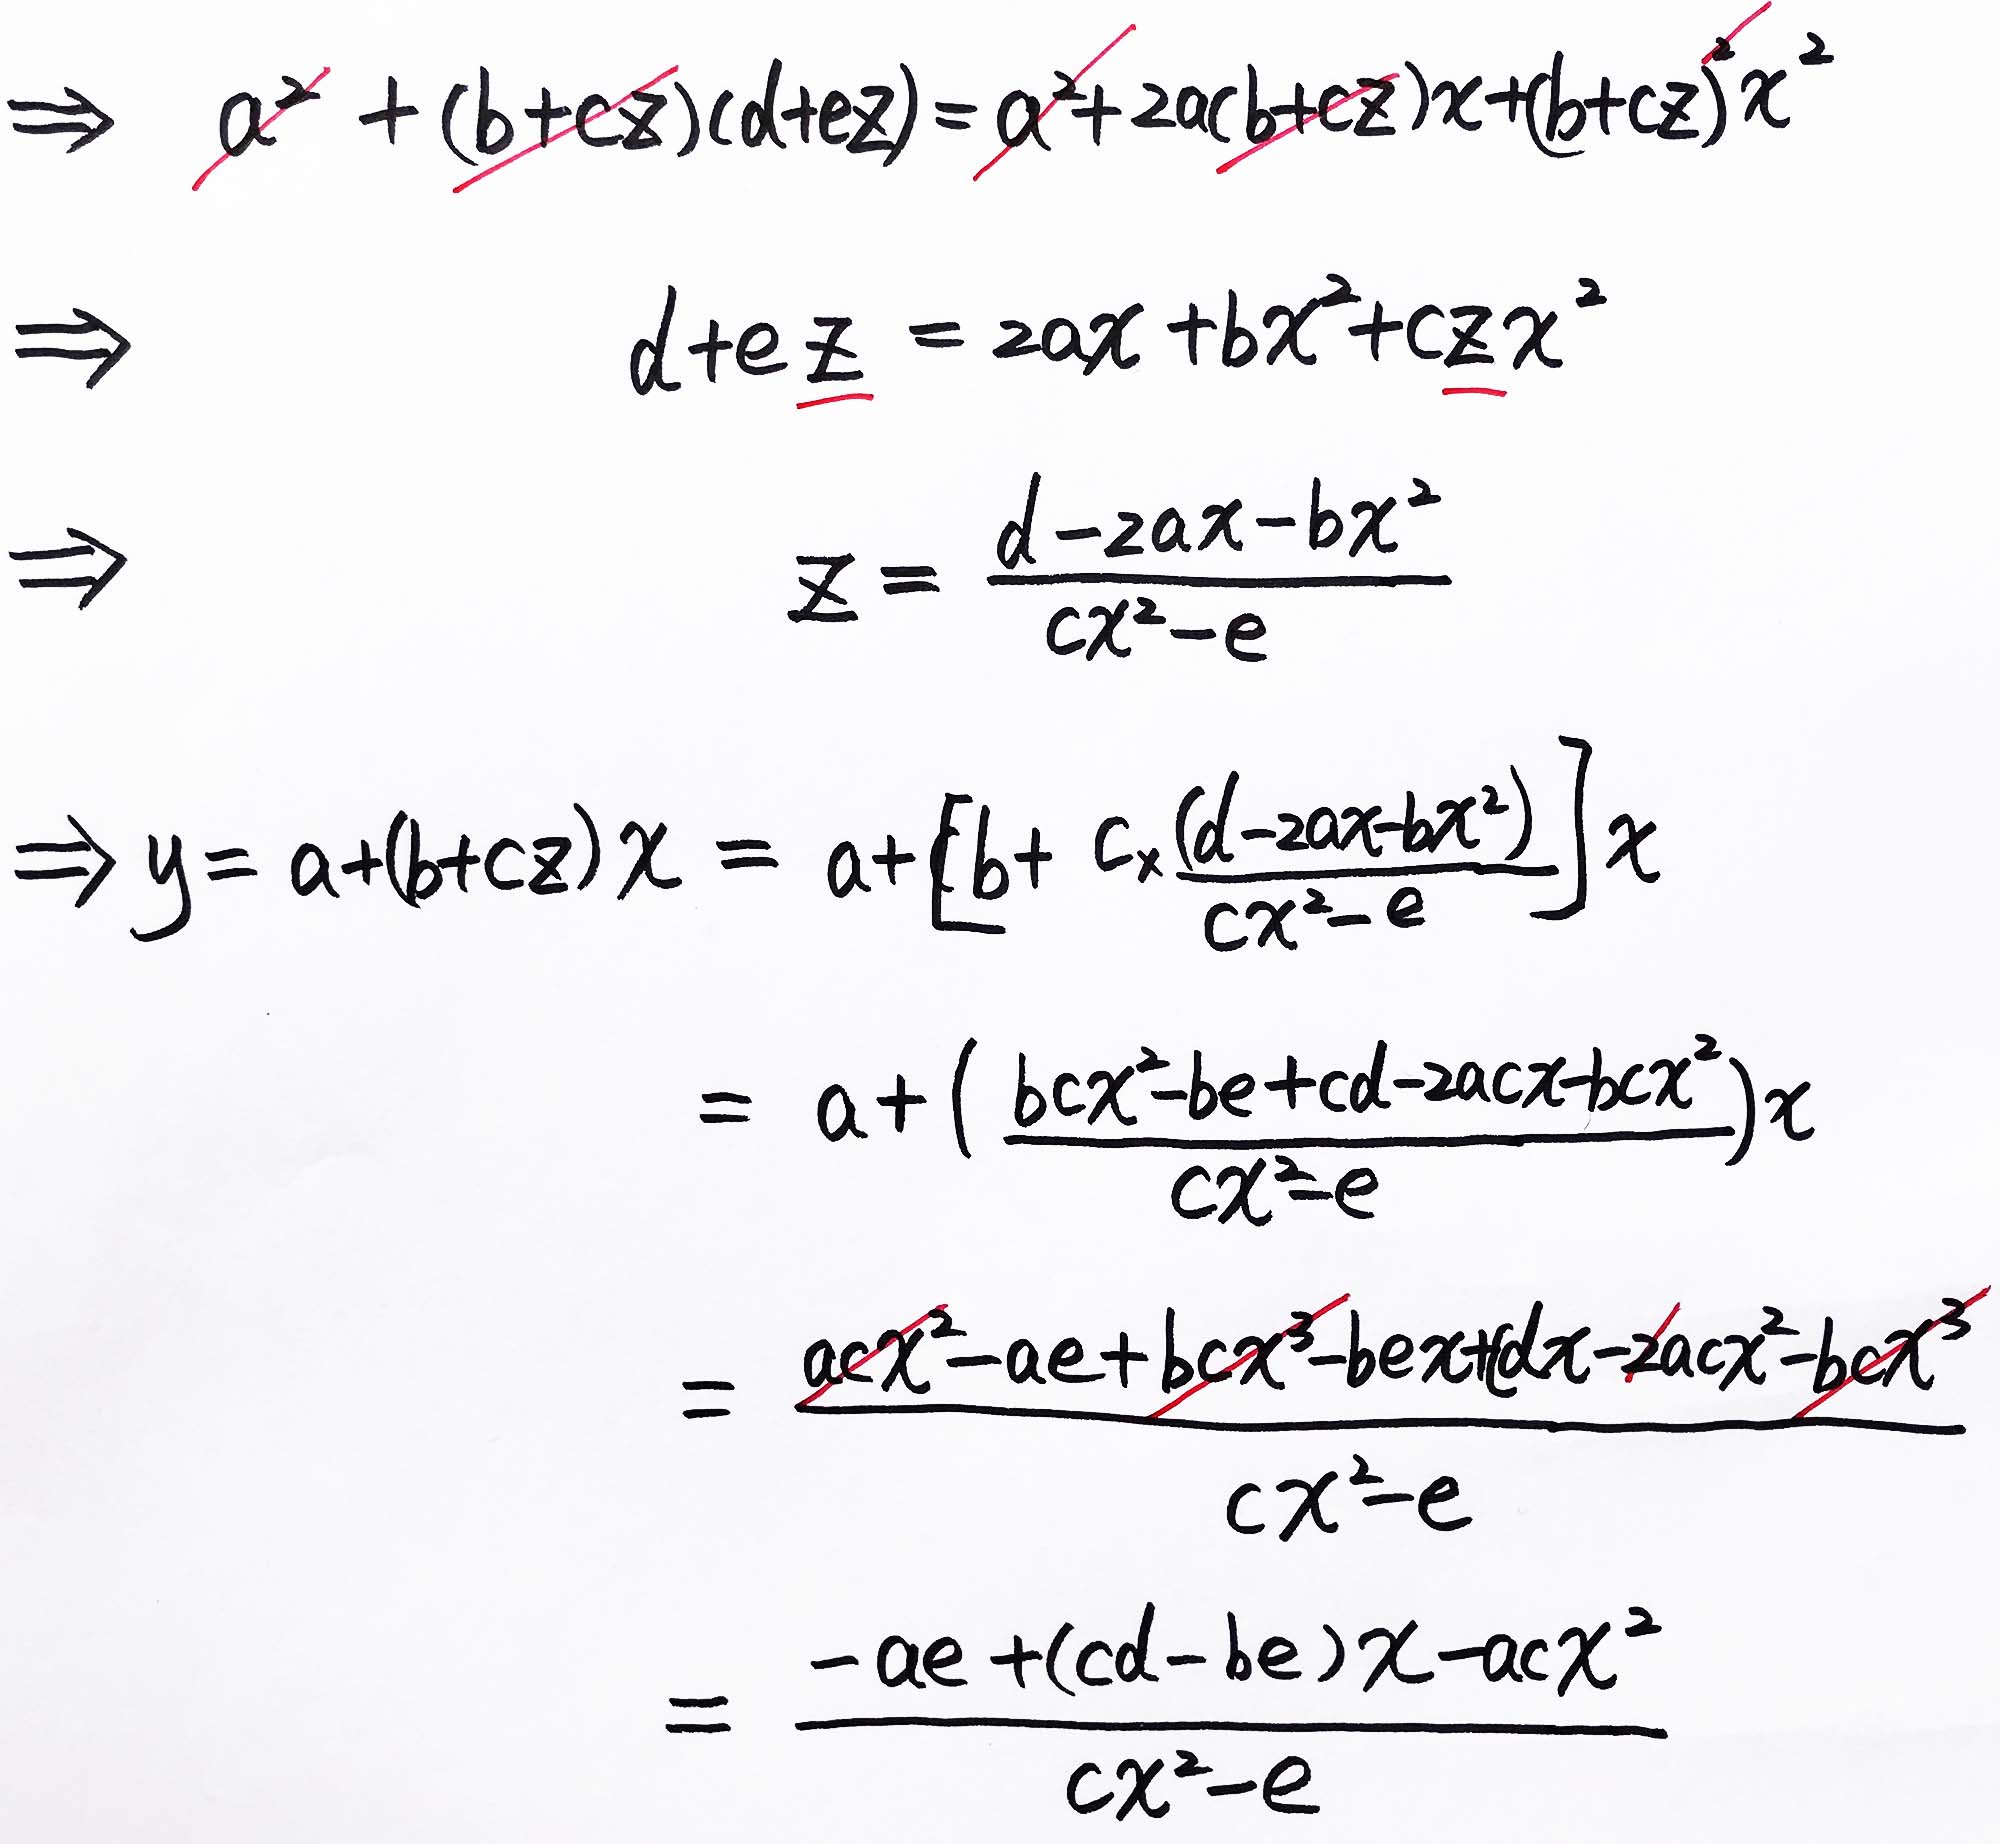 ⇒ a² + (b+cz)(d+ez) = a²+2a(b+cz)x+(b+cz)²x²
⇒ d+ez = 2ax+bx²+czx²
⇒ z = (d-2ax-bx²)/(cx²-e)
⇒ y = a+(b+cz)x = a+[b+c×(d-2ax-bx²)/(cx²-e)]x
= a+((bcx²-be+cd-2acx-bcx²)/(cx²-e))x
= (acx²-ae+bcx³-bex+cdx-2acx²-bcx³)/(cx²-e)
= (-ae+(cd-be)x-acx²)/(cx²-e)